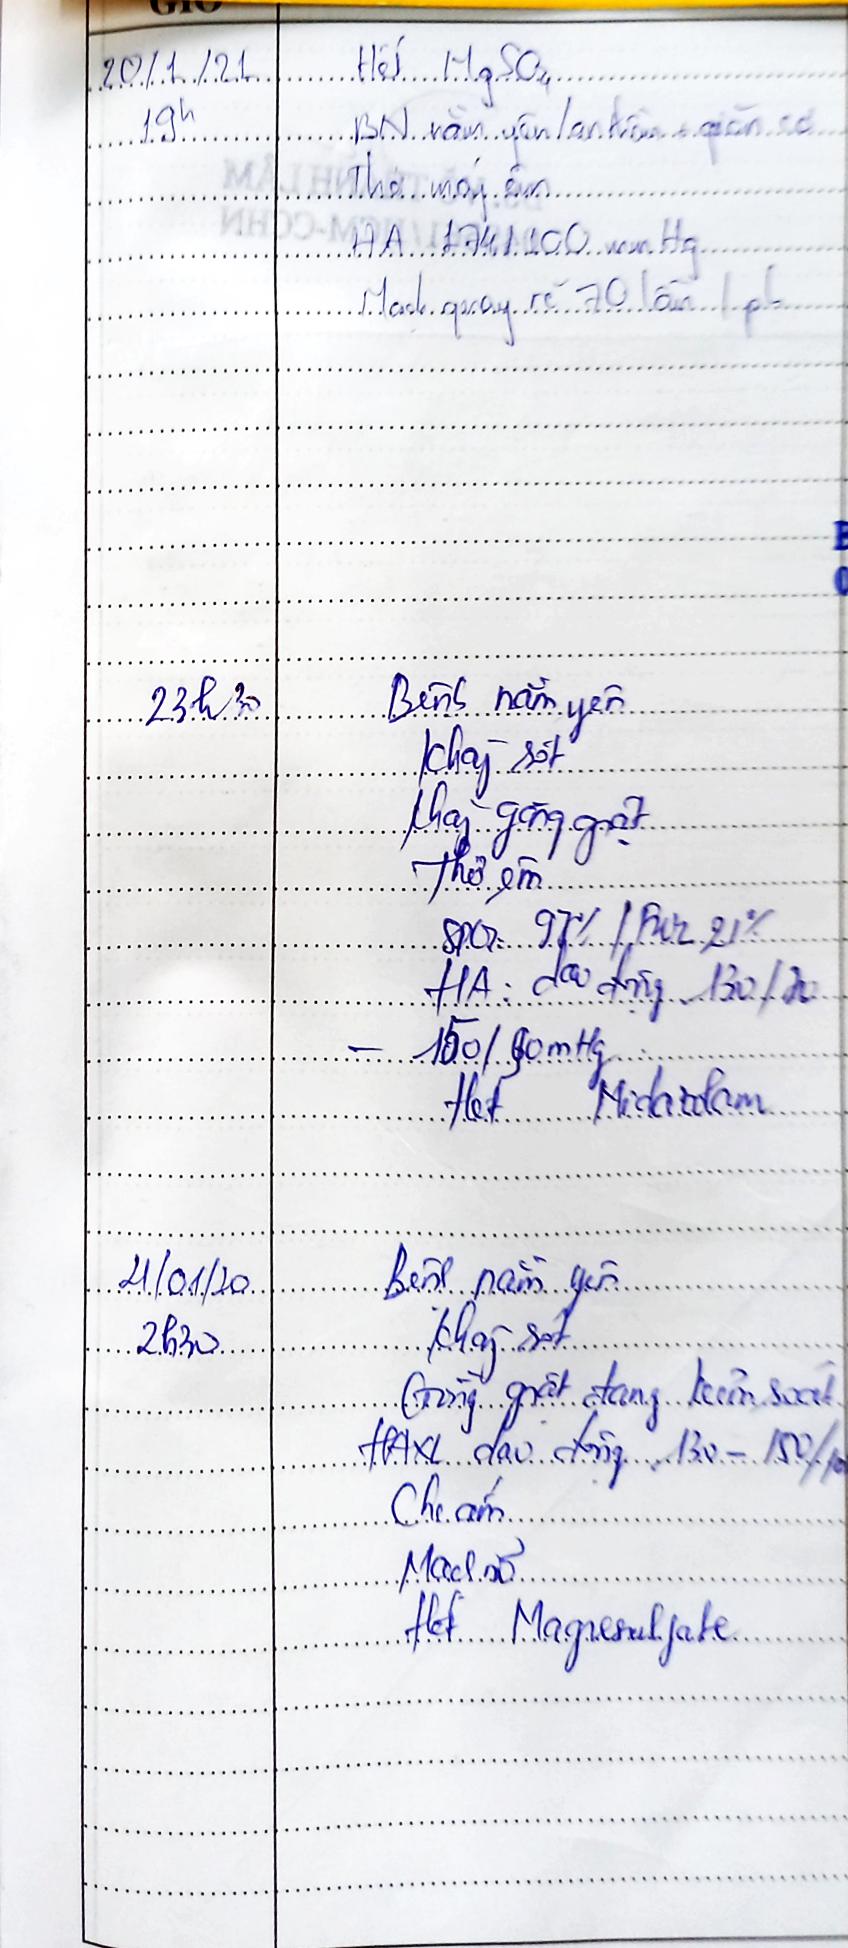 GIỜ
20/1/21 Hết MgSO4
19h BN nằm yên/an thần + giãn cơ
Thở máy êm
HA 174/100 mmHg
Mạch quay rõ 70 lần/ph
23h30 Bệnh nằm yên
Không sốt
Không gồng giật
Thở êm
SpO2: 97% / FiO2 21%
HA: dao động 130/
- 150/90mmHg
Hết Midazolam
21/01/20 Bệnh nằm yên
2h30 Không sốt
Gồng giật đang kiểm soát
HAXL dao động 130 - 150/
Chi ấm
Mạch rõ
Hết Magnesulfate